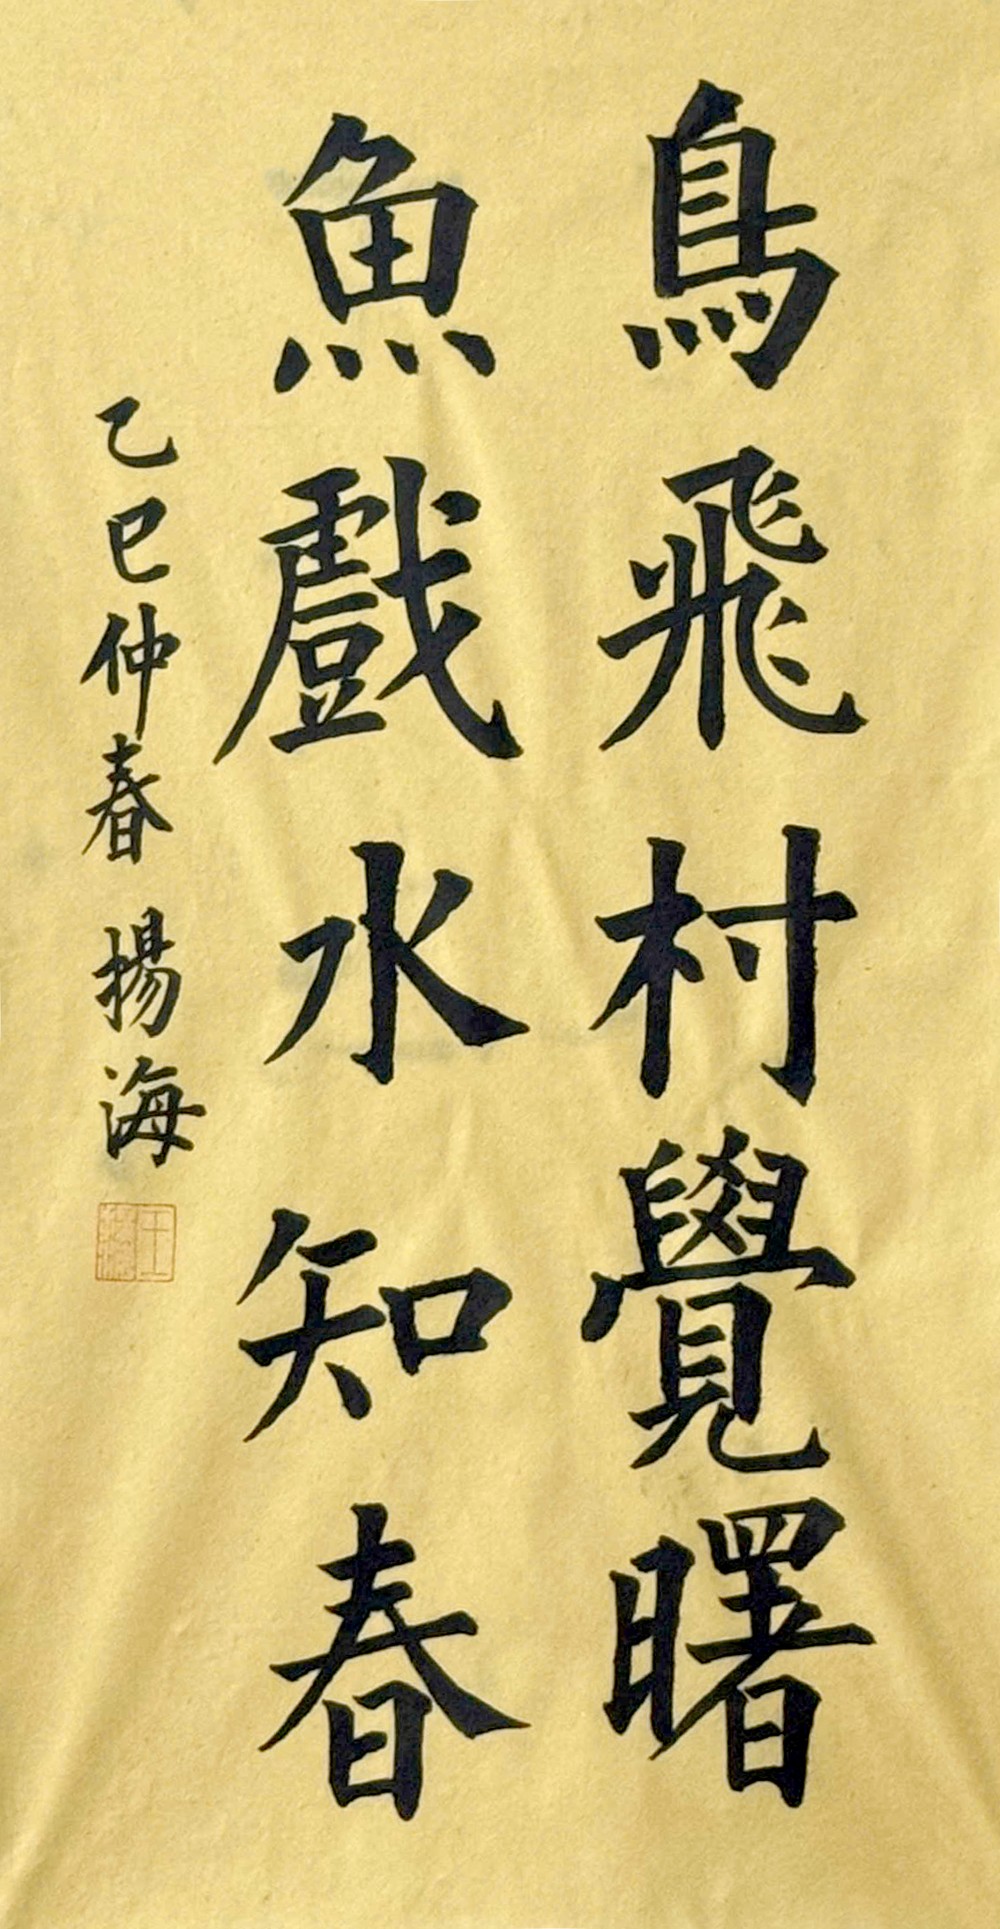 鳥飛村覺曙
魚戲水知春
乙巳仲春 揚海